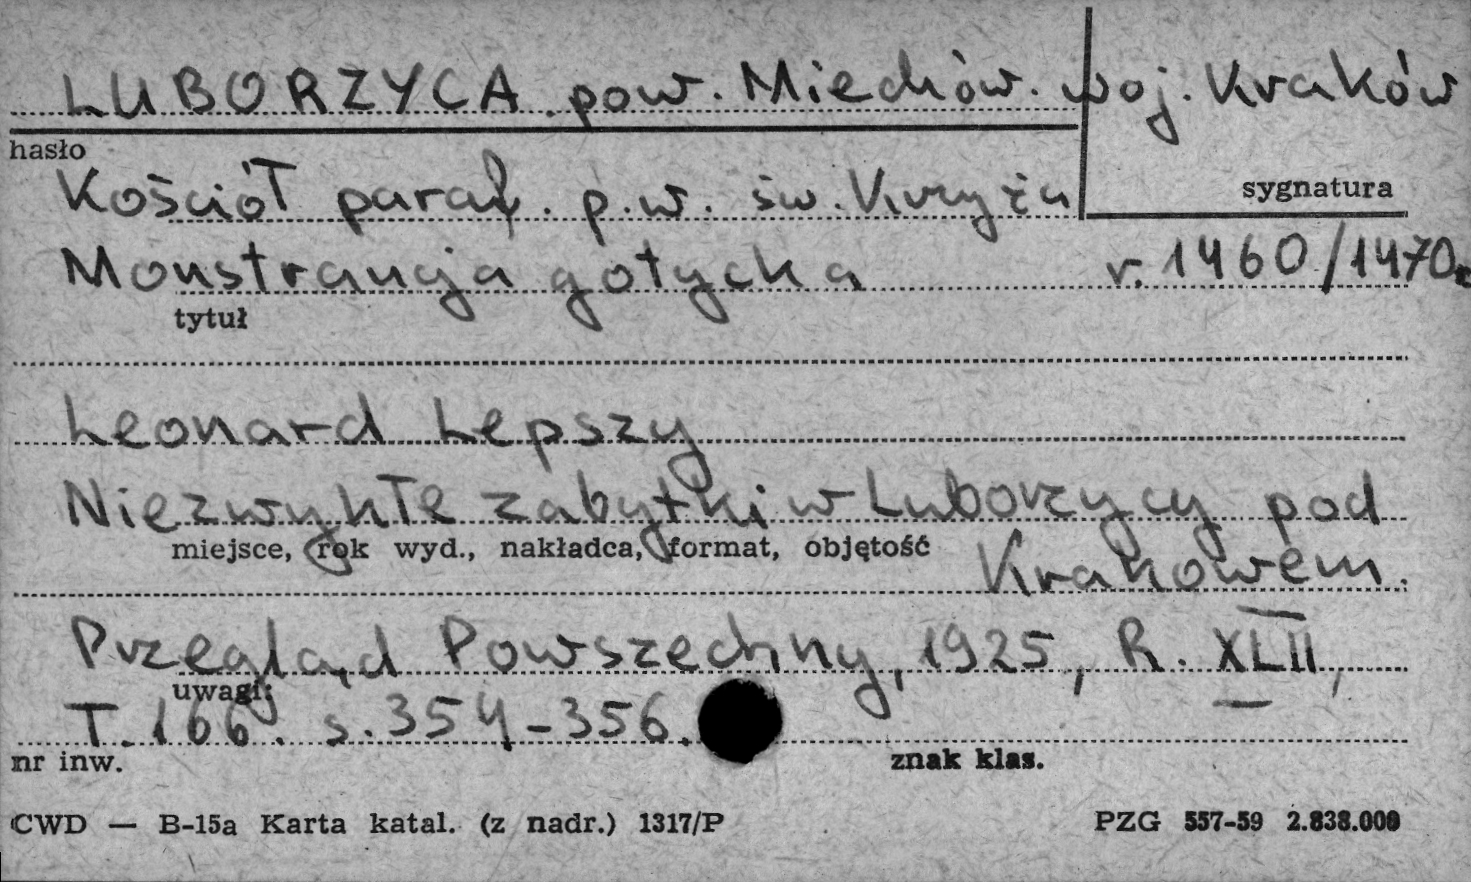 LUBORZYCA pow. Miechów. woj. Kraków
hasło
Kościół paraf. p.w. św. Krzyża
sygnatura
Monstrancja gotycka r. 1460/1470.
tytuł
Leonard Lepszy
Niezwykłe zabytki w Luborzycy pod
miejsce, rok wyd., nakładca, format, objętość
Krakowem.
Przegląd Powszechny, 1925, R. XLII,
uwagi:
T. 166. s. 354-356.
nr inw. znak klas.
CWD — B-15a Karta katal. (z nadr.) 1317/P PZG 557-59 2.838.000